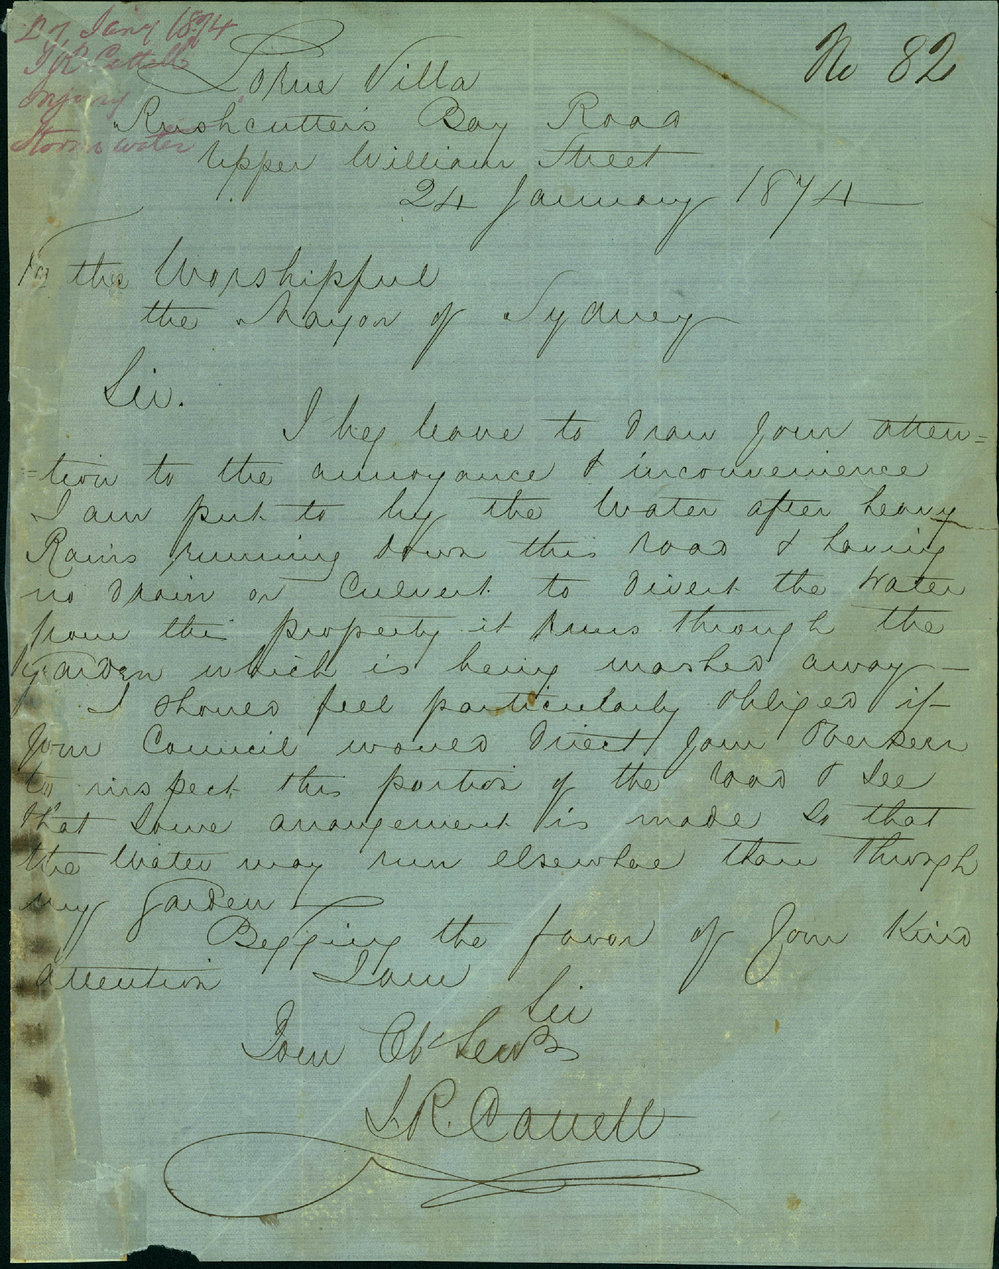 27 Jany 1874
J R Cattell
Injury
Storm water
No 82
Lorne Villa
Rushcutters Bay Road
Upper William Street
24 January 1874
To the Worshipful
the Mayor of Sydney
Sir.
I beg leave to draw your atten=
=tion to the annoyance & inconvenience
I am put to by the Water after heavy
Rains running down this road & having
no drain or Culvert to divert the Water
from this property it runs through the
Garden which is being washed away —
I should feel particularly obliged if
your Council would direct your Overseer
to inspect this portion of the road & see
that some arrangement is made so that
the Water may run elsewhere than through
my garden
Begging the favor of your Kind
attention I am
Sir
Your Ob Servt
J R. Cattell